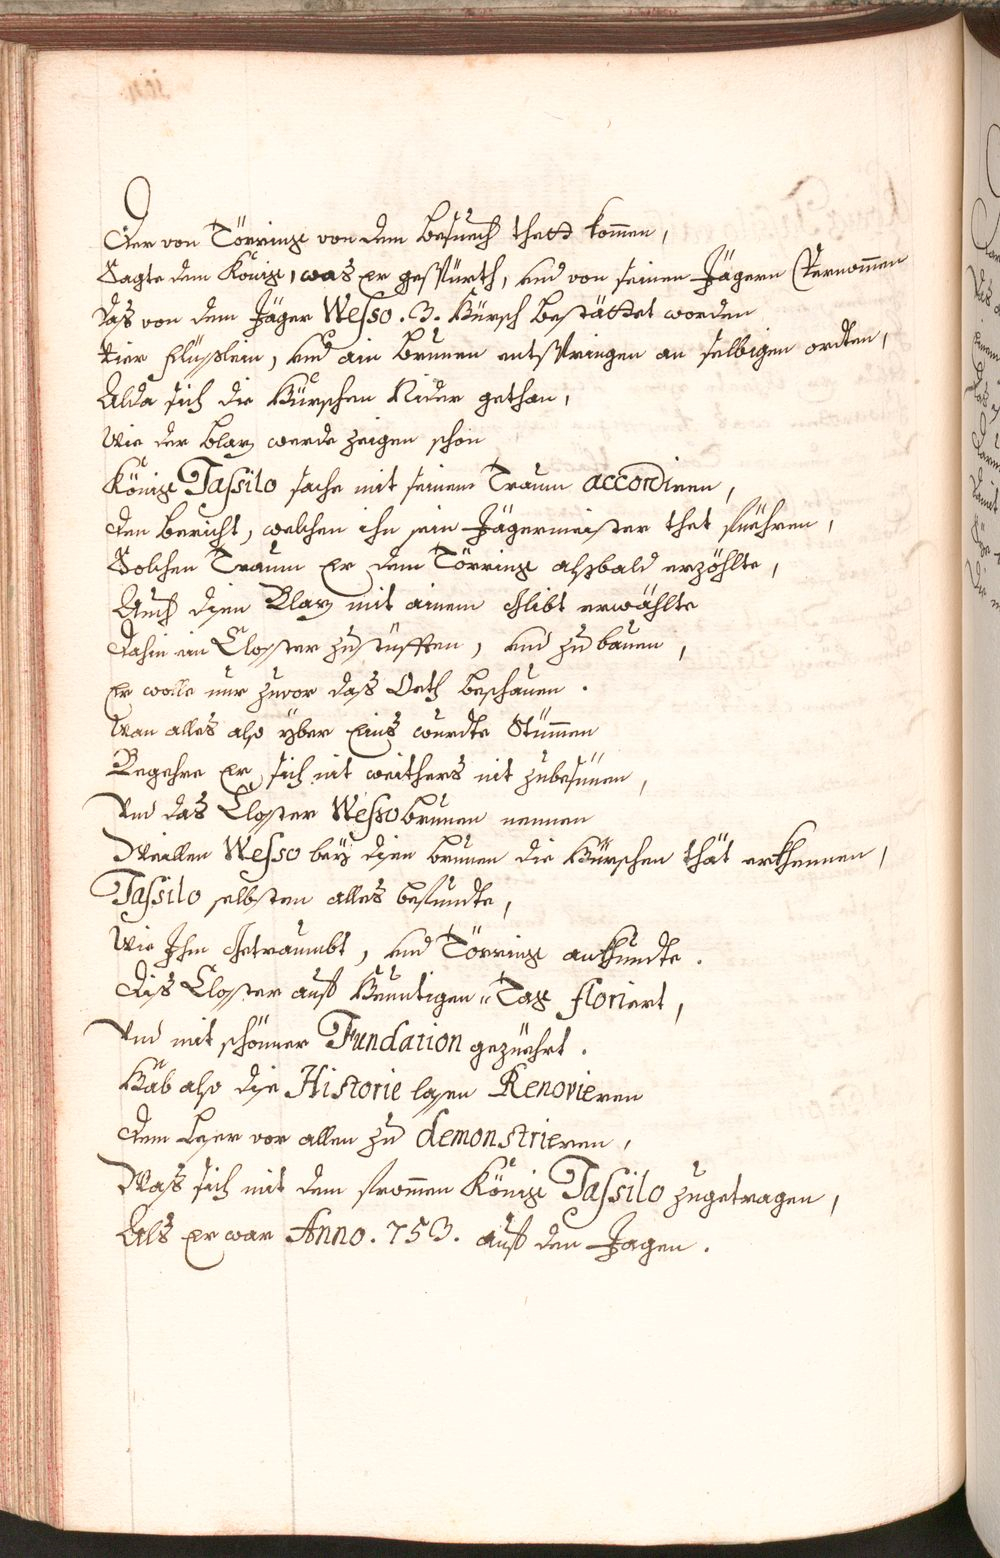 Der von Törring von dem Besuech thett kommen,
Sagte dem König, was Er gespürth, und von seinen Jägern Vernommen
Das von dem Jäger Wesso .3. Hürsch bestättet worden
Vier flüsslein, und ain Brunen entspringen an selbigen ordten,
Alda sich die Hürschen Nider gethan,
Wie der Blaz werde zeigen schon
König Tassilo sache mit seinem Traum accordiren,
Den bericht, welchen ihn sein Jägermeister thet fuehren,
Solchen Traum Er dem Törring alssbald erzöhlte,
Auch disen Blaz mit ainem Glibt erwählte
Dahin ein Closter zu stüfften, und zu bauen,
Er wolle nur zuvor dass Orth beschauen.
Wan alles also yber Eins wurdte Stümmen
Begehre Er sich nit weithers nit zubesünen,
Und das Closter Wessobrunen nennen
Weillen Wesso bey disen brunen die Hürschen thät erkhennen,
Tassilo selbsten alles befundte,
Wie Ihm Getraumbt, und Törring ankhundte.
Diss Closter auff Heuntigen Tag floriert,
Und mit schönner Fundation gezuehrt.
Hab also dise Historie lassen Renovieren
Dem Leser vor allen zu demonstrieren,
Wass sich mit dem frommen König Tassilo zugetragen,
Als Er war Anno. 753. auff den Jagen.